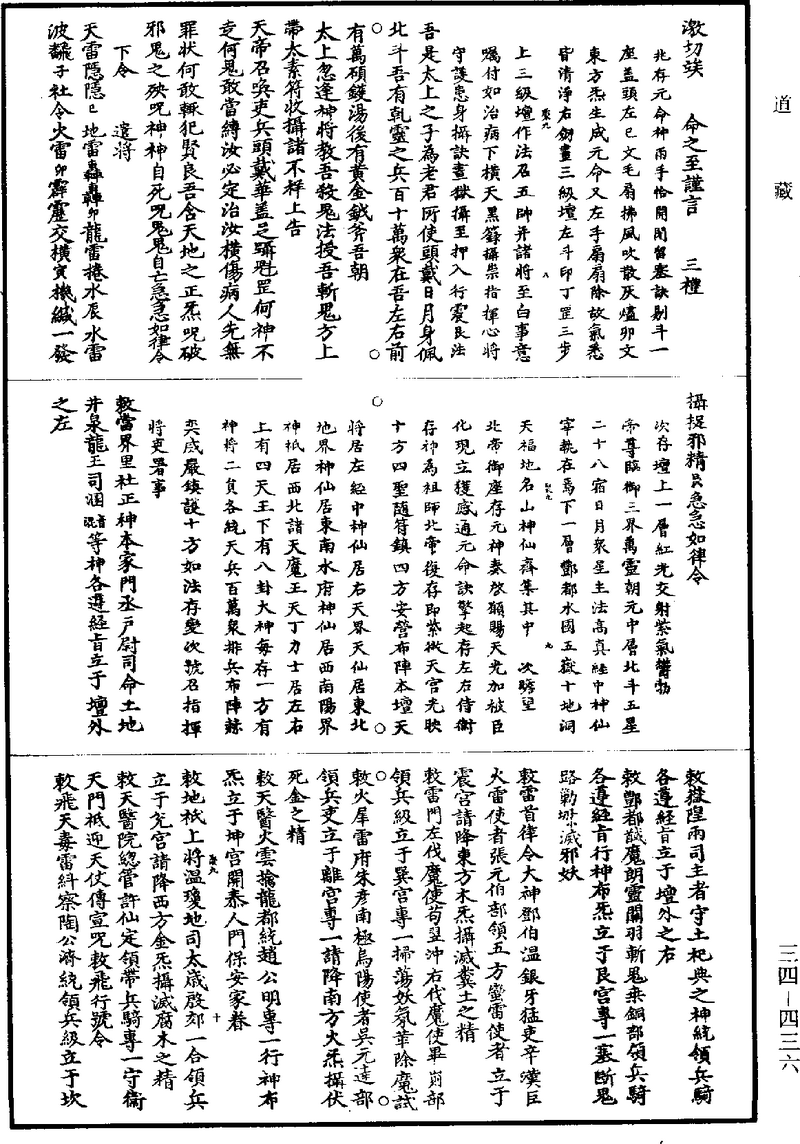 道藏
激切俟　命之至謹言　三禮
兆存元命神兩手恰開閉留塞訣剔斗一
座蓋頭左巳文毛扇拂風吹散灰爐卯文
東方炁生成元命又左手扇扇除故氣悉
皆清淨右劍畫三級壇左斗印丁罡三步
上三級壇作法召五帥并諸將至白事意
囑付如治病下橫天黑籙攝祟指揮心將
守護患身攝訣畫獄攝至押入行震艮法
吾是太上之子為老君所使頭戴日月身佩
北斗吾有乾靈之兵百十萬衆在吾左右前
有萬碩鑊湯後有黃金鉞斧吾朝
太上忽逢神將教吾殺鬼法授吾斬鬼方上
帶太素符收攝諸不祥上告
天帝召喚吏兵頭戴華蓋足躡魁罡何神不
走何鬼敢當縛汝必定治汝橫傷病人先無
罪狀何敢輒犯賢良吾含天地之正炁呪破
邪鬼之殃呪神神自死呪鬼鬼自亡急急如律令
下令　遣將
天雷隱隱巳地雷轟轟卯龍雷捲水辰水雷
波飜子社令火雷卯霹靂交橫寅機緘一發
攝捉邪精艮急急如律令
次存壇上一層紅光交射紫氣鬱勃
帝尊臨御三界萬靈朝元中層北斗五星
二十八宿日月衆星主法高真經中神仙
宰執在焉下一層酆都水國五嶽十地洞
天福地名山神仙齊集其中　次瞻望
北帝御座存元神奏啓願賜天光加被臣
化現立獲感通元命訣擎起存左右侍衛
存神為祖師北帝復存即紫微天宮光映
十方四聖隨符鎮四方安營布陣本壇天
將居左經中神仙居右天界天仙居東北
地界神仙居東南水府神仙居西南陽界
神祇居西北諸天魔王天丁力士居左右
上有四天王下有八卦大神每存一方有
神將二員各統天兵百萬衆排兵布陣赫
奕威嚴鎮護十方如法存變次號召指揮
將吏署事
敕當界里社正神本家門丞戶尉司命土地
井泉龍王司溷等神各遵經旨立于壇外
之左
敕嶽隍雨司主者守土祀典之神統領兵騎
各遵經旨立于壇外之右
敕酆都馘魔朗靈關羽斬鬼乘銅部領兵騎
各遵經旨行神布炁立于艮宮專一塞斷鬼
路勦滅邪妖
敕雷首律令大神鄧伯溫銀牙猛吏辛漢臣
火雷使者張元伯部領五方蠻雷使者立于
震宮請降東方木炁攝滅糞土之精
敕雷門左伐魔使苟翌沖右伐魔使畢

領兵級立于巽宮專一掃蕩妖氛華除魔試
敕火犀雷府朱彥南極烏陽使者吳元達部
領兵吏立于離宮專一請降南方火炁攝伏
死金之精
敕天醫火雲擒龍都統趙公明專一行神布
炁立于坤宮開泰人門保安家眷
敕地祇上將溫瓊地司太歲殷郊一合領兵
立于兌宮請降西方金炁攝滅腐木之精
敕天醫院總管許仙定領帶兵騎專一守衛
天門祇迎天仗傳宣呪敕飛行號令
敕飛天毒雷糾察陶公濟統領兵級立于坎
三四—四三六